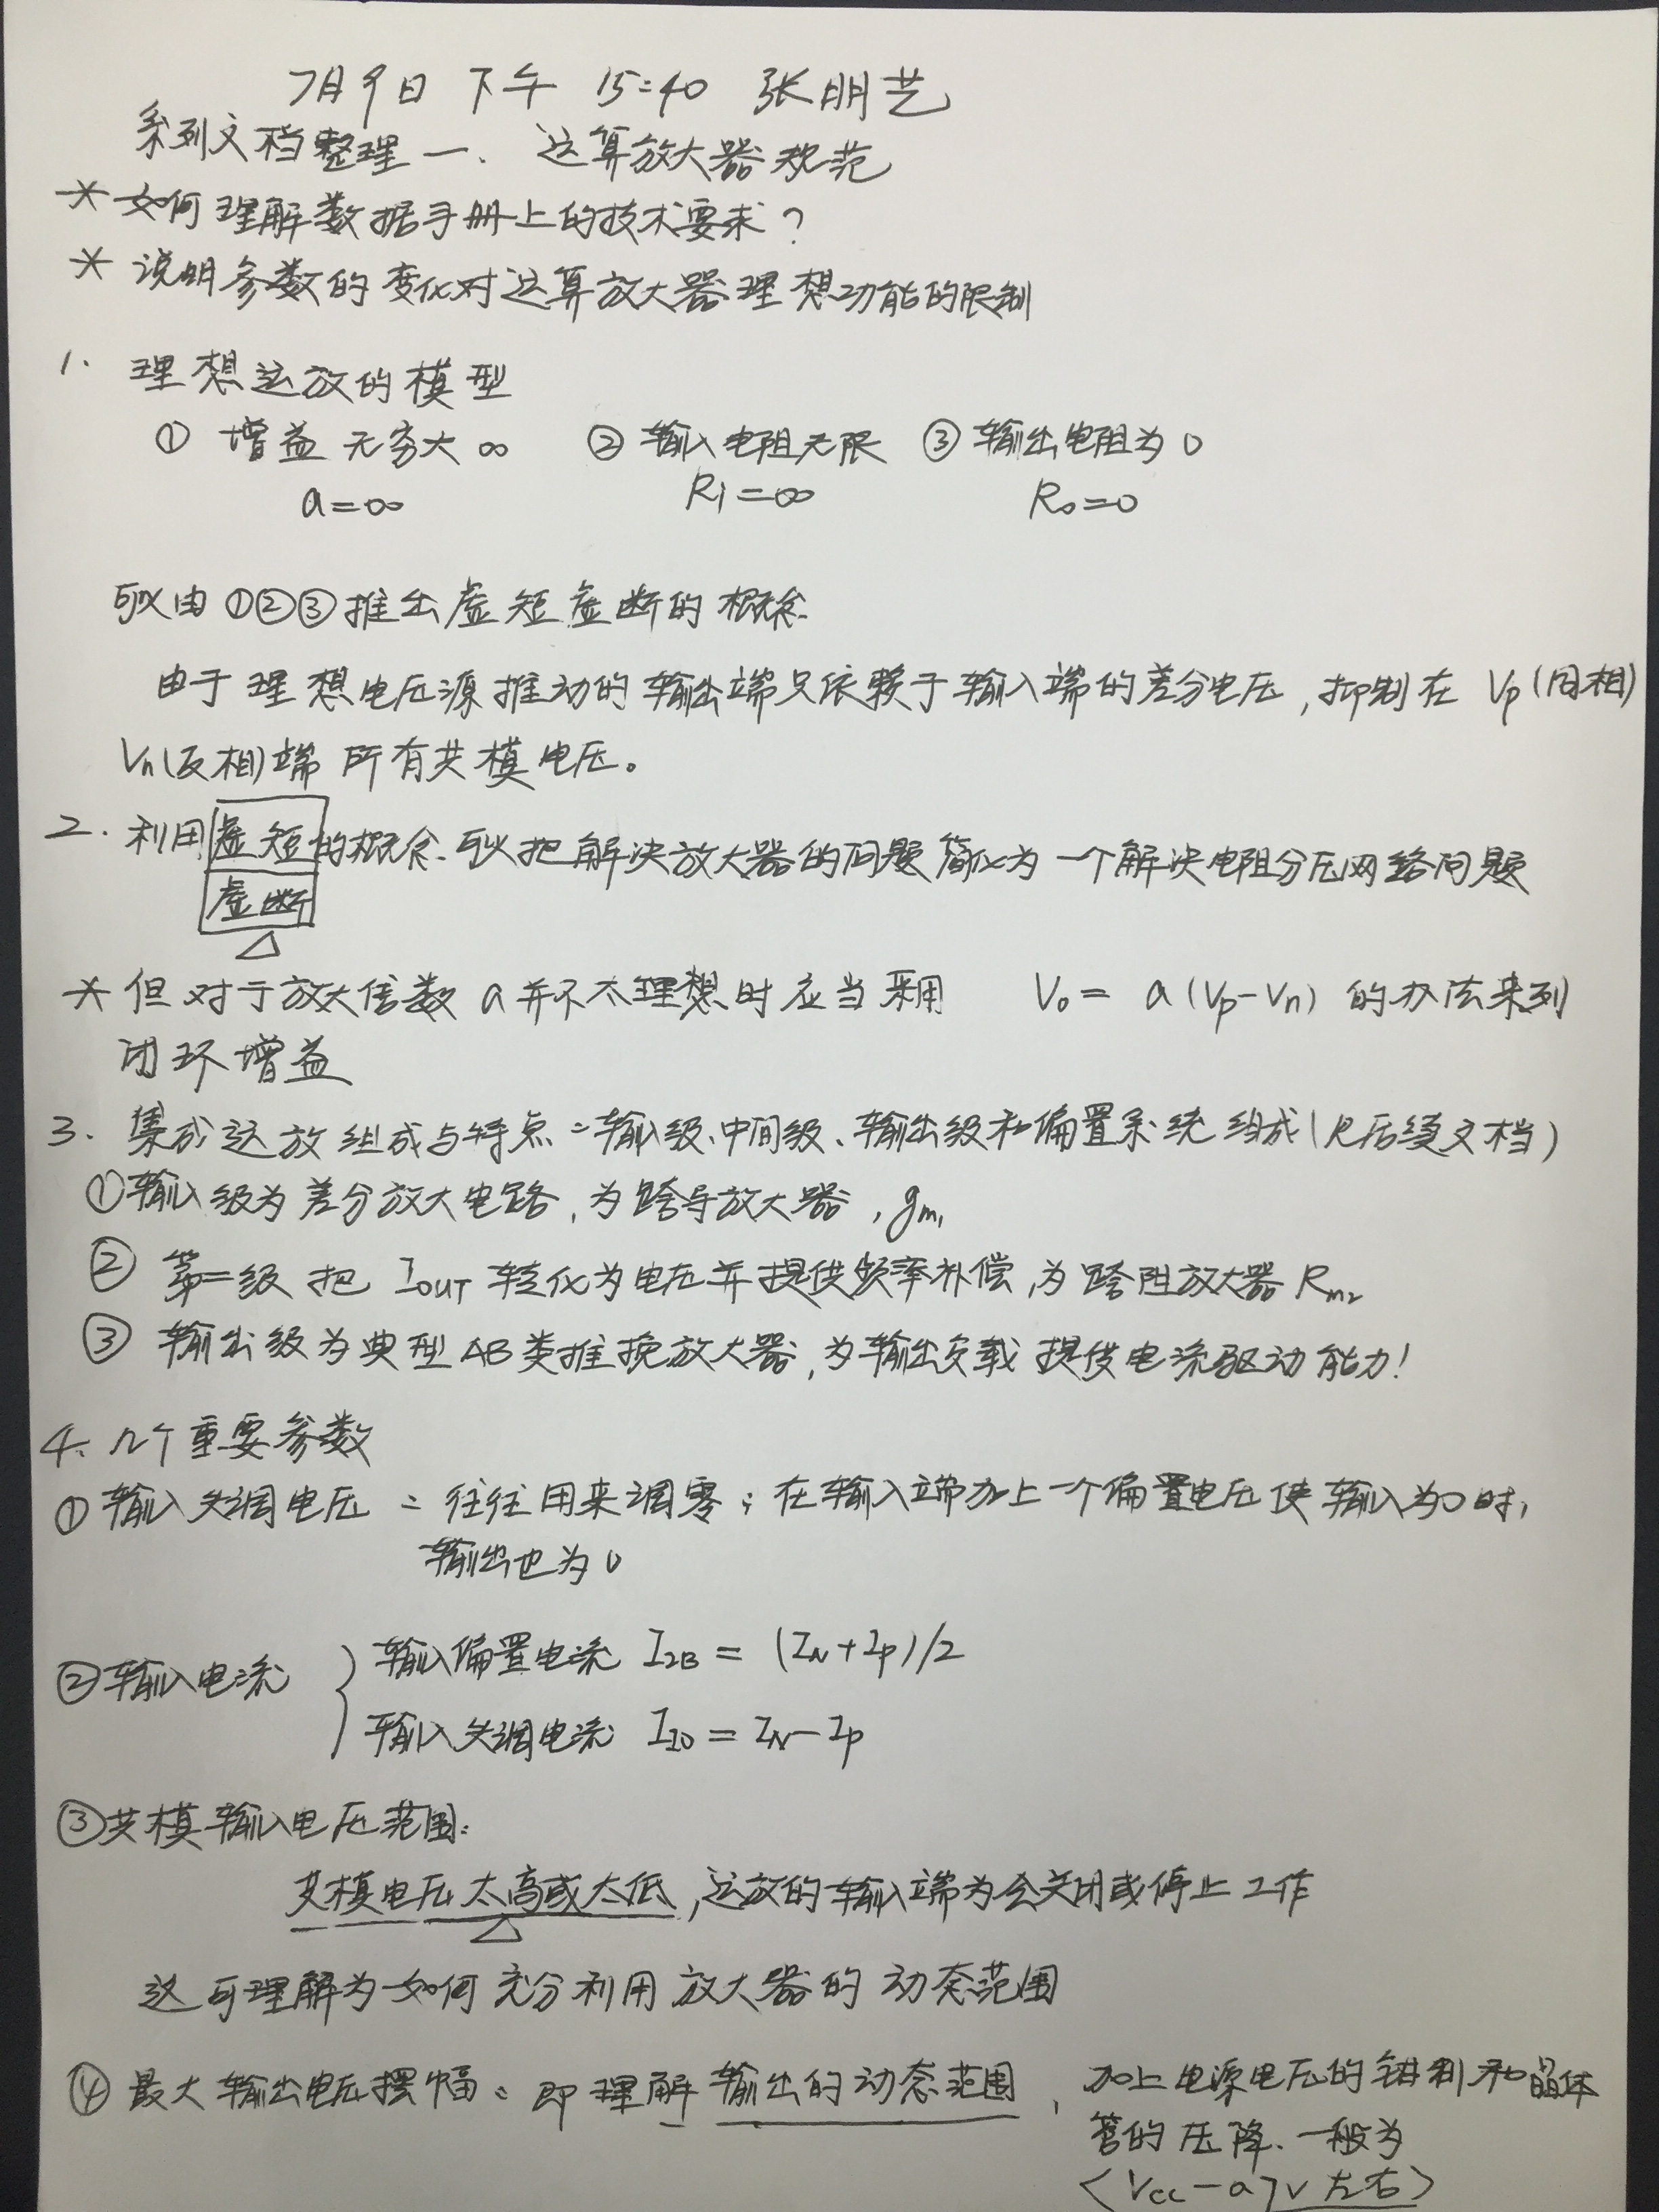 7月9日 下午 15:40 张朋艺
系列文档整理一、运算放大器规范
* 如何理解数据手册上的技术要求?
* 说明参数的变化对运算放大器理想功能的限制
1. 理想运放的模型
① 增益无穷大 ∞ ② 输入电阻无限 ③ 输出电阻为0
a=∞ Ri=∞ Ro=0
可以由①②③推出虚短虚断的概念.
由于理想电压源推动的输出端只依赖于输入端的差分电压,抑制在 Vp(同相)
Vn(反相)端所有共模电压。
2. 利用虚短的概念.可以把解决放大器的问题简化为一个解决电阻分压网络问题
虚断
△
* 但对于放大倍数 a并不太理想时应当采用 Vo = a(Vp-Vn) 的办法来列
闭环增益
3. 集成运放组成与特点:输入级、中间级、输出级和偏置系统组成(见后续文档)
①输入级为差分放大电路,为跨导放大器,gm1
② 第二级把 IOUT 转化为电压并提供频率补偿,为跨阻放大器 Rm2
③ 输出级为典型AB类推挽放大器,为输出负载提供电流驱动能力!
4、几个重要参数
① 输入失调电压:往往用来调零;在输入端加上一个偏置电压使输入为0时,
输出也为0
②输入电流 { 输入偏置电流 IIB = (IN+IP)/2
输入失调电流 IIO = IN-IP
③共模输入电压范围:
共模电压太高或太低,运放的输入端为会关闭或停止工作
△
这可理解为如何充分利用放大器的动态范围
④ 最大输出电压摆幅:即理解输出的动态范围、加上电源电压的钳制和晶体
管的压降.一般为
<Vcc-a>V左右>